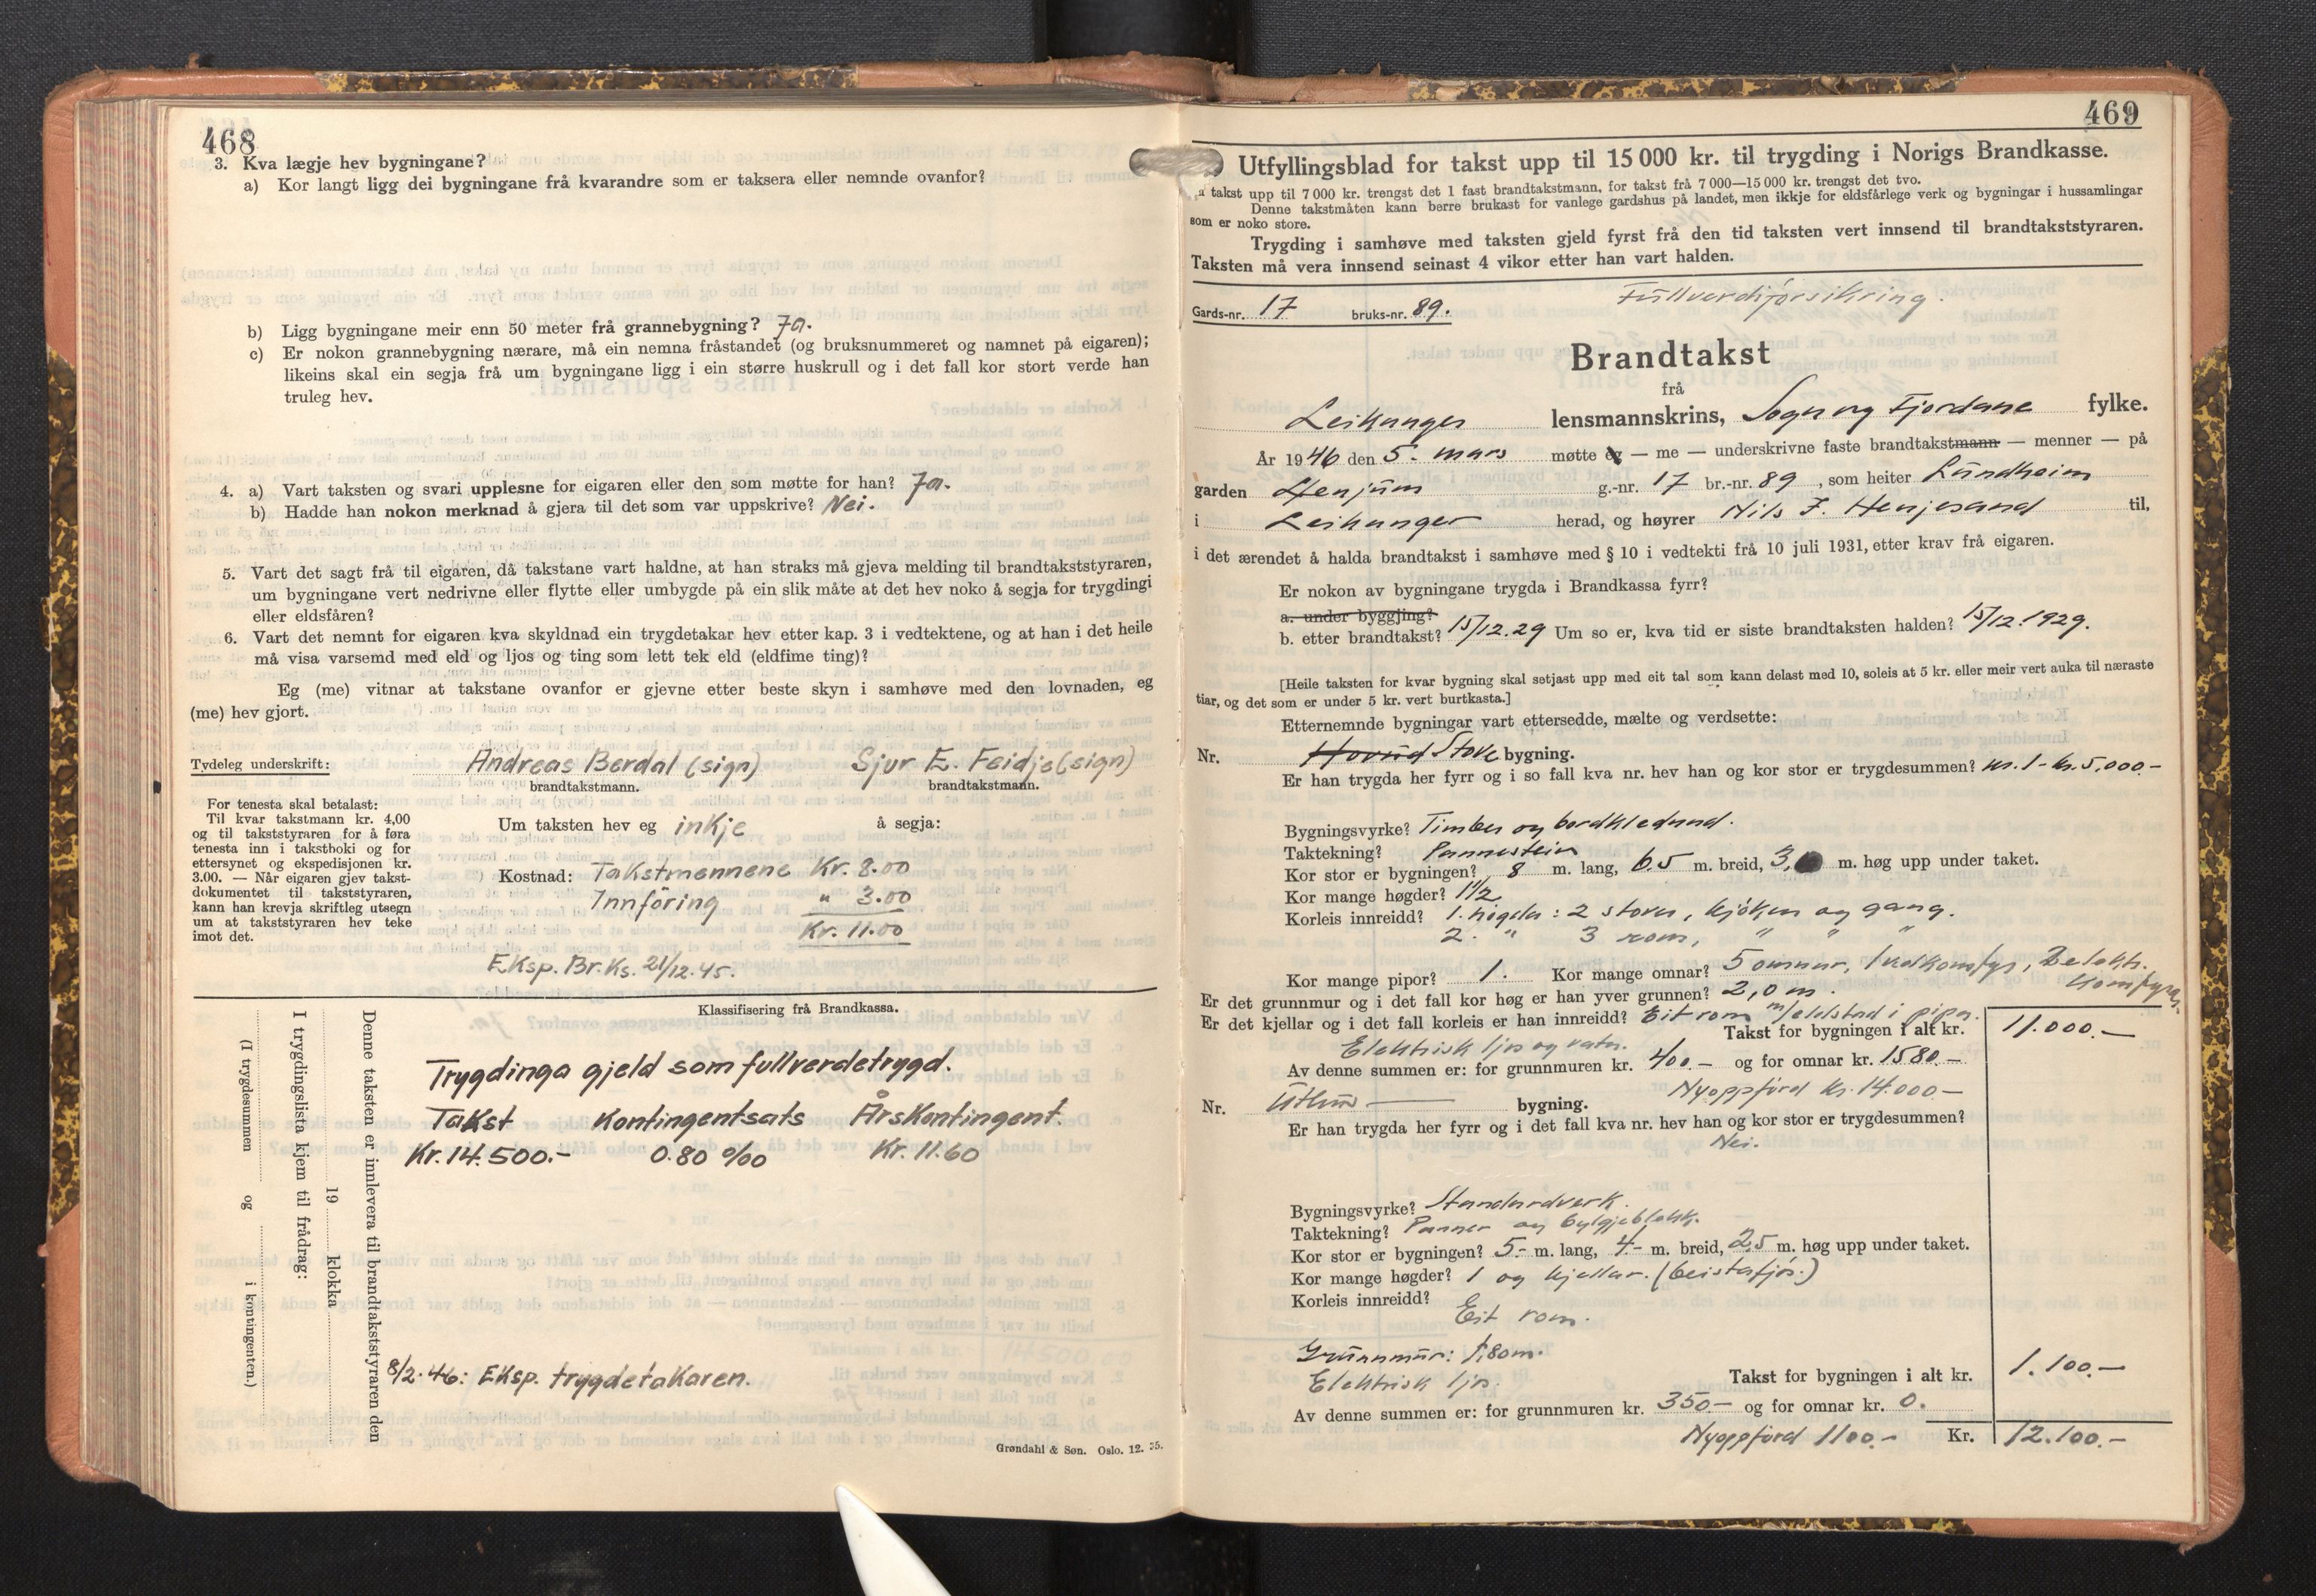 468
3. Kva lægje hev bygningane?
a) Kor langt ligg dei bygningane frå kvarandre som er taksera eller nemnde ovanfor?
b) Ligg bygningane meir enn 50 meter frå grannebygning? Ja.
c) Er nokon grannebygning nærare, må ein nemna fråstandet (og bruksnummeret og namnet på eigaren);
likeins skal ein segja frå um bygningane ligg i ein større huskrull og i det fall kor stort verde han
truleg hev.
4. a) Vart taksten og svari upplesne for eigaren eller den som møtte for han? Ja.
b) Hadde han nokon merknad å gjera til det som var uppskrive? Nei.
5. Vart det sagt frå til eigaren, då takstane vart haldne, at han straks må gjeva melding til brandtakststyraren,
um bygningane vert nedrivne eller flytte eller umbygde på ein slik måte at det hev noko å segja for trygdingi
eller eldsfåren?
6. Vart det nemnt for eigaren kva skyldnad ein trygdetakar hev etter kap. 3 i vedtektene, og at han i det heile
må visa varsemd med eld og ljos og ting som lett tek eld (eldfime ting)?
Eg (me) vitnar at takstane ovanfor er gjevne etter beste skyn i samhøve med den lovnaden, eg
(me) hev gjort.
Tydeleg underskrift: Andreas Berdal (sign) Sjur E. Feidje (sign)
brandtakstmann. brandtakstmann.
For tenesta skal betalast:
Til kvar takstmann kr. 4,00
og til takststyraren for å føra
tenesta inn i takstboki og for
ettersynet og ekspedisjonen kr.
3.00. — Når eigaren gjev takst-
dokumentet til takststyraren,
kann han krevja skriftleg utsegn
um at takststyraren hev teke
imot det.
Um taksten hev eg inkje å segja:
Kostnad: Takstmennene Kr. 8.00
Innföring " 3.00
Kr. 11.00
Eksp. Br.Ks. 21/12.45.
Klassifisering frå Brandkassa.
Denne taksten er innlevera til brandtakststyraren den
19 klokka
I trygdingslista kjem til frådrag:
(I trygdesummen og i kontingenten.)
Trygdinga gjeld som fullverdetrygd.
Takst Kontingentsats Årskontingent.
Kr. 14.500.- 0.80 ‰ Kr. 11.60
8/2.46: Eksp. trygdetakaren.
Grøndahl & Søn. Oslo. 12. 35.
469
Utfyllingsblad for takst upp til 15 000 kr. til trygding i Norigs Brandkasse.
takst upp til 7 000 kr. trengst det 1 fast brandtakstmann, for takst frå 7 000—15 000 kr. trengst det tvo.
Denne takstmåten kann berre brukast for vanlege gardshus på landet, men ikkje for eldsfårlege verk og bygningar i hussamlingar
som er noko store.
Trygding i samhøve med taksten gjeld fyrst frå den tid taksten vert innsend til brandtakststyraren.
Taksten må vera innsend seinast 4 vikor etter han vart halden.
Fullverdiforsikring.
Gards-nr. 17 bruks-nr. 89.
Brandtakst
frå
Leikanger lensmannskrins, Sogn og Fjordane fylke.
År 1946 den 5. mars møtte eg — me — underskrivne faste brandtakstmann — menner — på
garden Henjum g.-nr. 17 br.-nr. 89, som heiter Lundheim
i Leikanger herad, og høyrer Nils J. Henjesand til,
i det ærendet å halda brandtakst i samhøve med § 10 i vedtekti frå 10 juli 1931, etter krav frå eigaren.
Er nokon av bygningane trygda i Brandkassa fyrr?
a. under byggjing?
b. etter brandtakst? 15/12.29 Um so er, kva tid er siste brandtaksten halden? 15/12.1929.
[Heile taksten for kvar bygning skal setjast upp med eit tal som kann delast med 10, soleis at 5 kr. eller meir vert auka til næraste
tiar, og det som er under 5 kr. vert burtkasta.]
Etternemnde bygningar vart ettersedde, mælte og verdsette:
Nr. Hovud Stove bygning.
Er han trygda her fyrr og i so fall kva nr. hev han og kor stor er trygdesummen? nr. 1 - kr. 5.000.-
Bygningsvyrke? Timber og bordkledund.
Taktekning? Pannestein
Kor stor er bygningen? 8 m. lang, 6.5 m. breid, 3, m. høg upp under taket.
Kor mange høgder? 1 1/2
Korleis innreidd? 1. högda: 2 stover, kjöken og gang.
2. " 3 rom, " " "
Kor mange pipor? 1. Kor mange omnar? 5 omnar, 1 vedkomfyr, 2 elektr. komfyrar.
Er det grunnmur og i det fall kor høg er han yver grunnen? 2,0 m.
Er det kjellar og i det fall korleis er han innreidd? Eit rom m/eldstad i pipa.
Takst for bygningen i alt kr. 11.000.—
Elektrisk ljos og vatn.
Av denne summen er: for grunnmuren kr. 400.— og for omnar kr. 1580.—
Nyoppförd kr. 14.000.—
Nr. Uthus bygning.
Er han trygda her fyrr og i det fall kva nr. hev han og kor stor er trygdesummen?
Nei.
Bygningsvyrke? Standardverk.
Taktekning? Panner og bylgjeblekk.
Kor stor er bygningen? 5.- m. lang, 4.- m. breid, 2,5 m. høg upp under taket.
Kor mange høgder? 1 og kjellar. (beistefjös.)
Korleis innreidd?
Eit rom.
Grunnmur: 1,80 m.
Elektrisk ljos. Takst for bygningen i alt kr. 1.100.—
Av denne summen er: for grunnmuren kr. 350.— og for omnar kr. 0.
Nyoppförd 1100.- Kr. 12.100.—